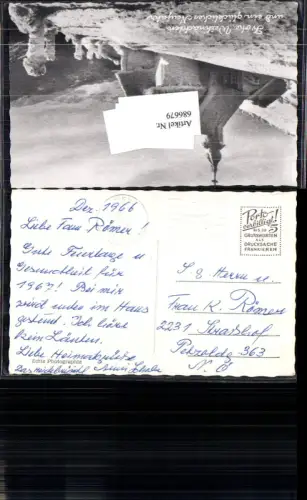 Frohe Weihnachten
und ein glückliches Neujahr
Artikel Nr.
686679
Dez. 1966
Liebe Frau Römer!
Gute Feiertage u.
Gesundheit für
1967! Bei mir
sind alles im Haus
gesund. Ich
kein
Liebe Heimatgrüße
Echte Photographie
Porto
ermäßigt!
BIS ZU 5
GRUSSWORTEN
ALS
DRUCKSACHE
FRANKIEREN
S g. Herrn u.
Frau K. Römer
2231 Strasshof
363
N. Ö